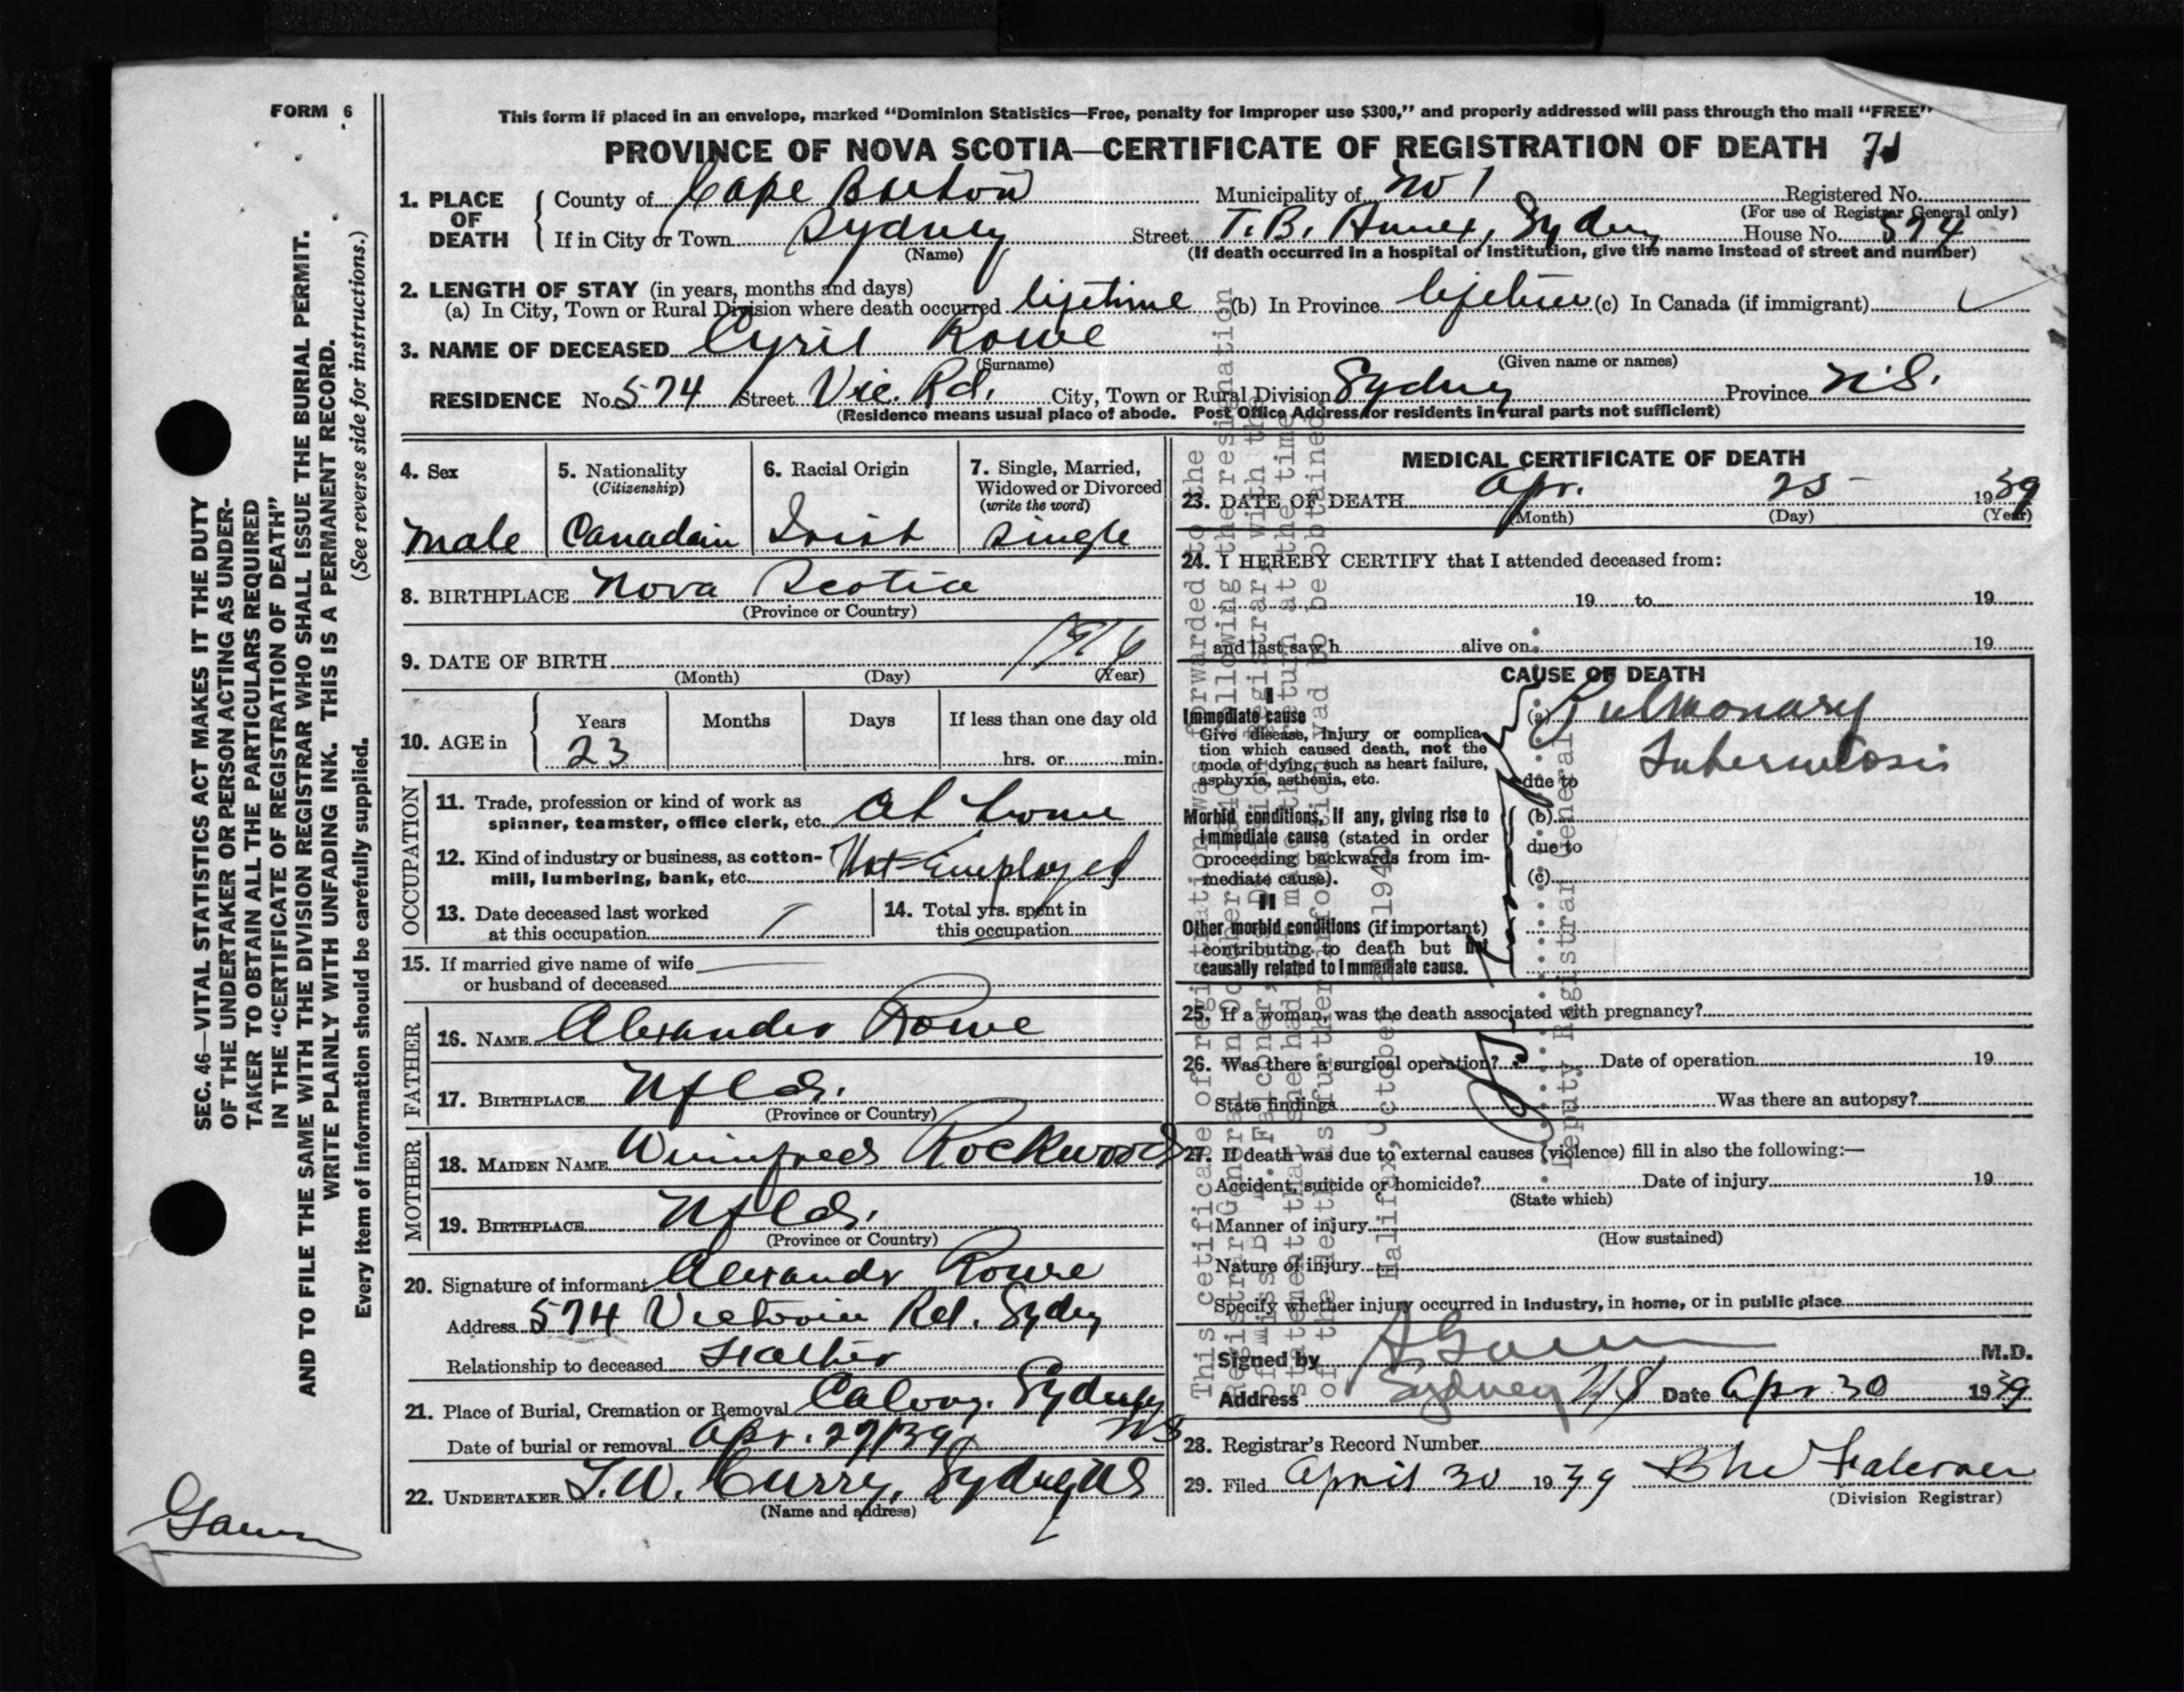 FORM 6
This form if placed in an envelope, marked “Dominion Statistics—Free, penalty for improper use $300,” and properly addressed will pass through the mail “FREE”
PROVINCE OF NOVA SCOTIA—CERTIFICATE OF REGISTRATION OF DEATH
1. PLACE OF DEATH
County of Cape Breton Municipality of No 1 Registered No.
(For use of Registrar General only)
If in City or Town Sydney Street T.B. Annex, Sydney House No. 574
(Name) (If death occurred in a hospital or institution, give the name instead of street and number)
2. LENGTH OF STAY (in years, months and days)
(a) In City, Town or Rural Division where death occurred lifetime (b) In Province lifetime (c) In Canada (if immigrant)
3. NAME OF DECEASED Cyril Rowe
(Surname) (Given name or names)
RESIDENCE No. 574 Street Vic. Rd. City, Town or Rural Division Sydney Province N.S.
(Residence means usual place of abode. Post Office Address for residents in rural parts not sufficient)
4. Sex
male
5. Nationality
(Citizenship)
Canadain
6. Racial Origin
Irish
7. Single, Married,
Widowed or Divorced
(write the word)
single
8. BIRTHPLACE Nova Scotia
(Province or Country)
9. DATE OF BIRTH 1916
(Month) (Day) (Year)
10. AGE in
Years Months Days If less than one day old
23 hrs. or min.
OCCUPATION
11. Trade, profession or kind of work as
spinner, teamster, office clerk, etc. At home
12. Kind of industry or business, as cotton-
mill, lumbering, bank, etc. Not Employed
13. Date deceased last worked
at this occupation
14. Total yrs. spent in
this occupation
15. If married give name of wife
or husband of deceased
FATHER
16. NAME Alexander Rowe
17. BIRTHPLACE Nfld.
(Province or Country)
MOTHER
18. MAIDEN NAME Winnifred Rockwood
19. BIRTHPLACE Nfld.
(Province or Country)
20. Signature of informant Alexandr Rowe
Address 574 Victoria Rd. Sydney
Relationship to deceased Father
21. Place of Burial, Cremation or Removal Calvary. Sydney
NS
Date of burial or removal Apr. 27/39
22. UNDERTAKER T.W. Curry, Sydney NS
(Name and address)
MEDICAL CERTIFICATE OF DEATH
23. DATE OF DEATH Apr. 25 1939
(Month) (Day) (Year)
24. I HEREBY CERTIFY that I attended deceased from:
19 to 19
and last saw h alive on 19
CAUSE OF DEATH
I
Immediate cause
Give disease, injury or complica-
tion which caused death, not the
mode of dying, such as heart failure,
asphyxia, asthenia, etc.
(a) Pulmonary
Tuberculosis
due to
Morbid conditions, if any, giving rise to
immediate cause (stated in order
proceeding backwards from im-
mediate cause).
(b)
due to
(c)
II
Other morbid conditions (if important)
contributing to death but not
causally related to immediate cause.
25. If a woman, was the death associated with pregnancy?
26. Was there a surgical operation? Date of operation 19
State findings Was there an autopsy?
27. If death was due to external causes (violence) fill in also the following:—
Accident, suicide or homicide? Date of injury 19
(State which)
Manner of injury
(How sustained)
Nature of injury
Specify whether injury occurred in industry, in home, or in public place
Signed by M.D.
Address Sydney NS Date Apr 30 1939
28. Registrar's Record Number
29. Filed April 30 1939
(Division Registrar)
This certificate of registration was forwarded to the
Registrar General in October 1940 following the resignation
of Miss B. M. Falconer, Division Registrar, with the
statement that she had made the return at the time
of the death as further information had to be obtained
Halifax, October 1940
Deputy Registrar General
SEC. 46—VITAL STATISTICS ACT MAKES IT THE DUTY
OF THE UNDERTAKER OR PERSON ACTING AS UNDER-
TAKER TO OBTAIN ALL THE PARTICULARS REQUIRED
IN THE “CERTIFICATE OF REGISTRATION OF DEATH”
AND TO FILE THE SAME WITH THE DIVISION REGISTRAR WHO SHALL ISSUE THE BURIAL PERMIT.
WRITE PLAINLY WITH UNFADING INK. THIS IS A PERMANENT RECORD.
Every item of information should be carefully supplied. (See reverse side for instructions.)